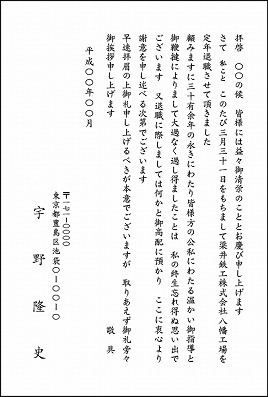 拝啓　〇〇の候　皆様には益々御清栄のこととお慶び申し上げます
さて　私こと　このたび三月三十一日をもちまして梁井鉄工株式会社八幡工場を
定年退職させて頂きました
顧みますに三十有余年の永きにわたり皆様方の公私にわたる温かい御指導と
御鞭撻によりまして大過なく過し得ましたことは　私の終生忘れ得ぬ思い出で
ございます　又退職に際しましては何かと御高配に預かり　ここに衷心より
謝意を申し述べる次第でございます
早速拝眉の上御礼申し上げるべきが本意でございますが　取りあえず御礼旁々
御挨拶申し上げます　敬具
平成〇〇年〇〇月
〒171-0000
東京都豊島区池袋〇-〇〇-〇
宇野隆史